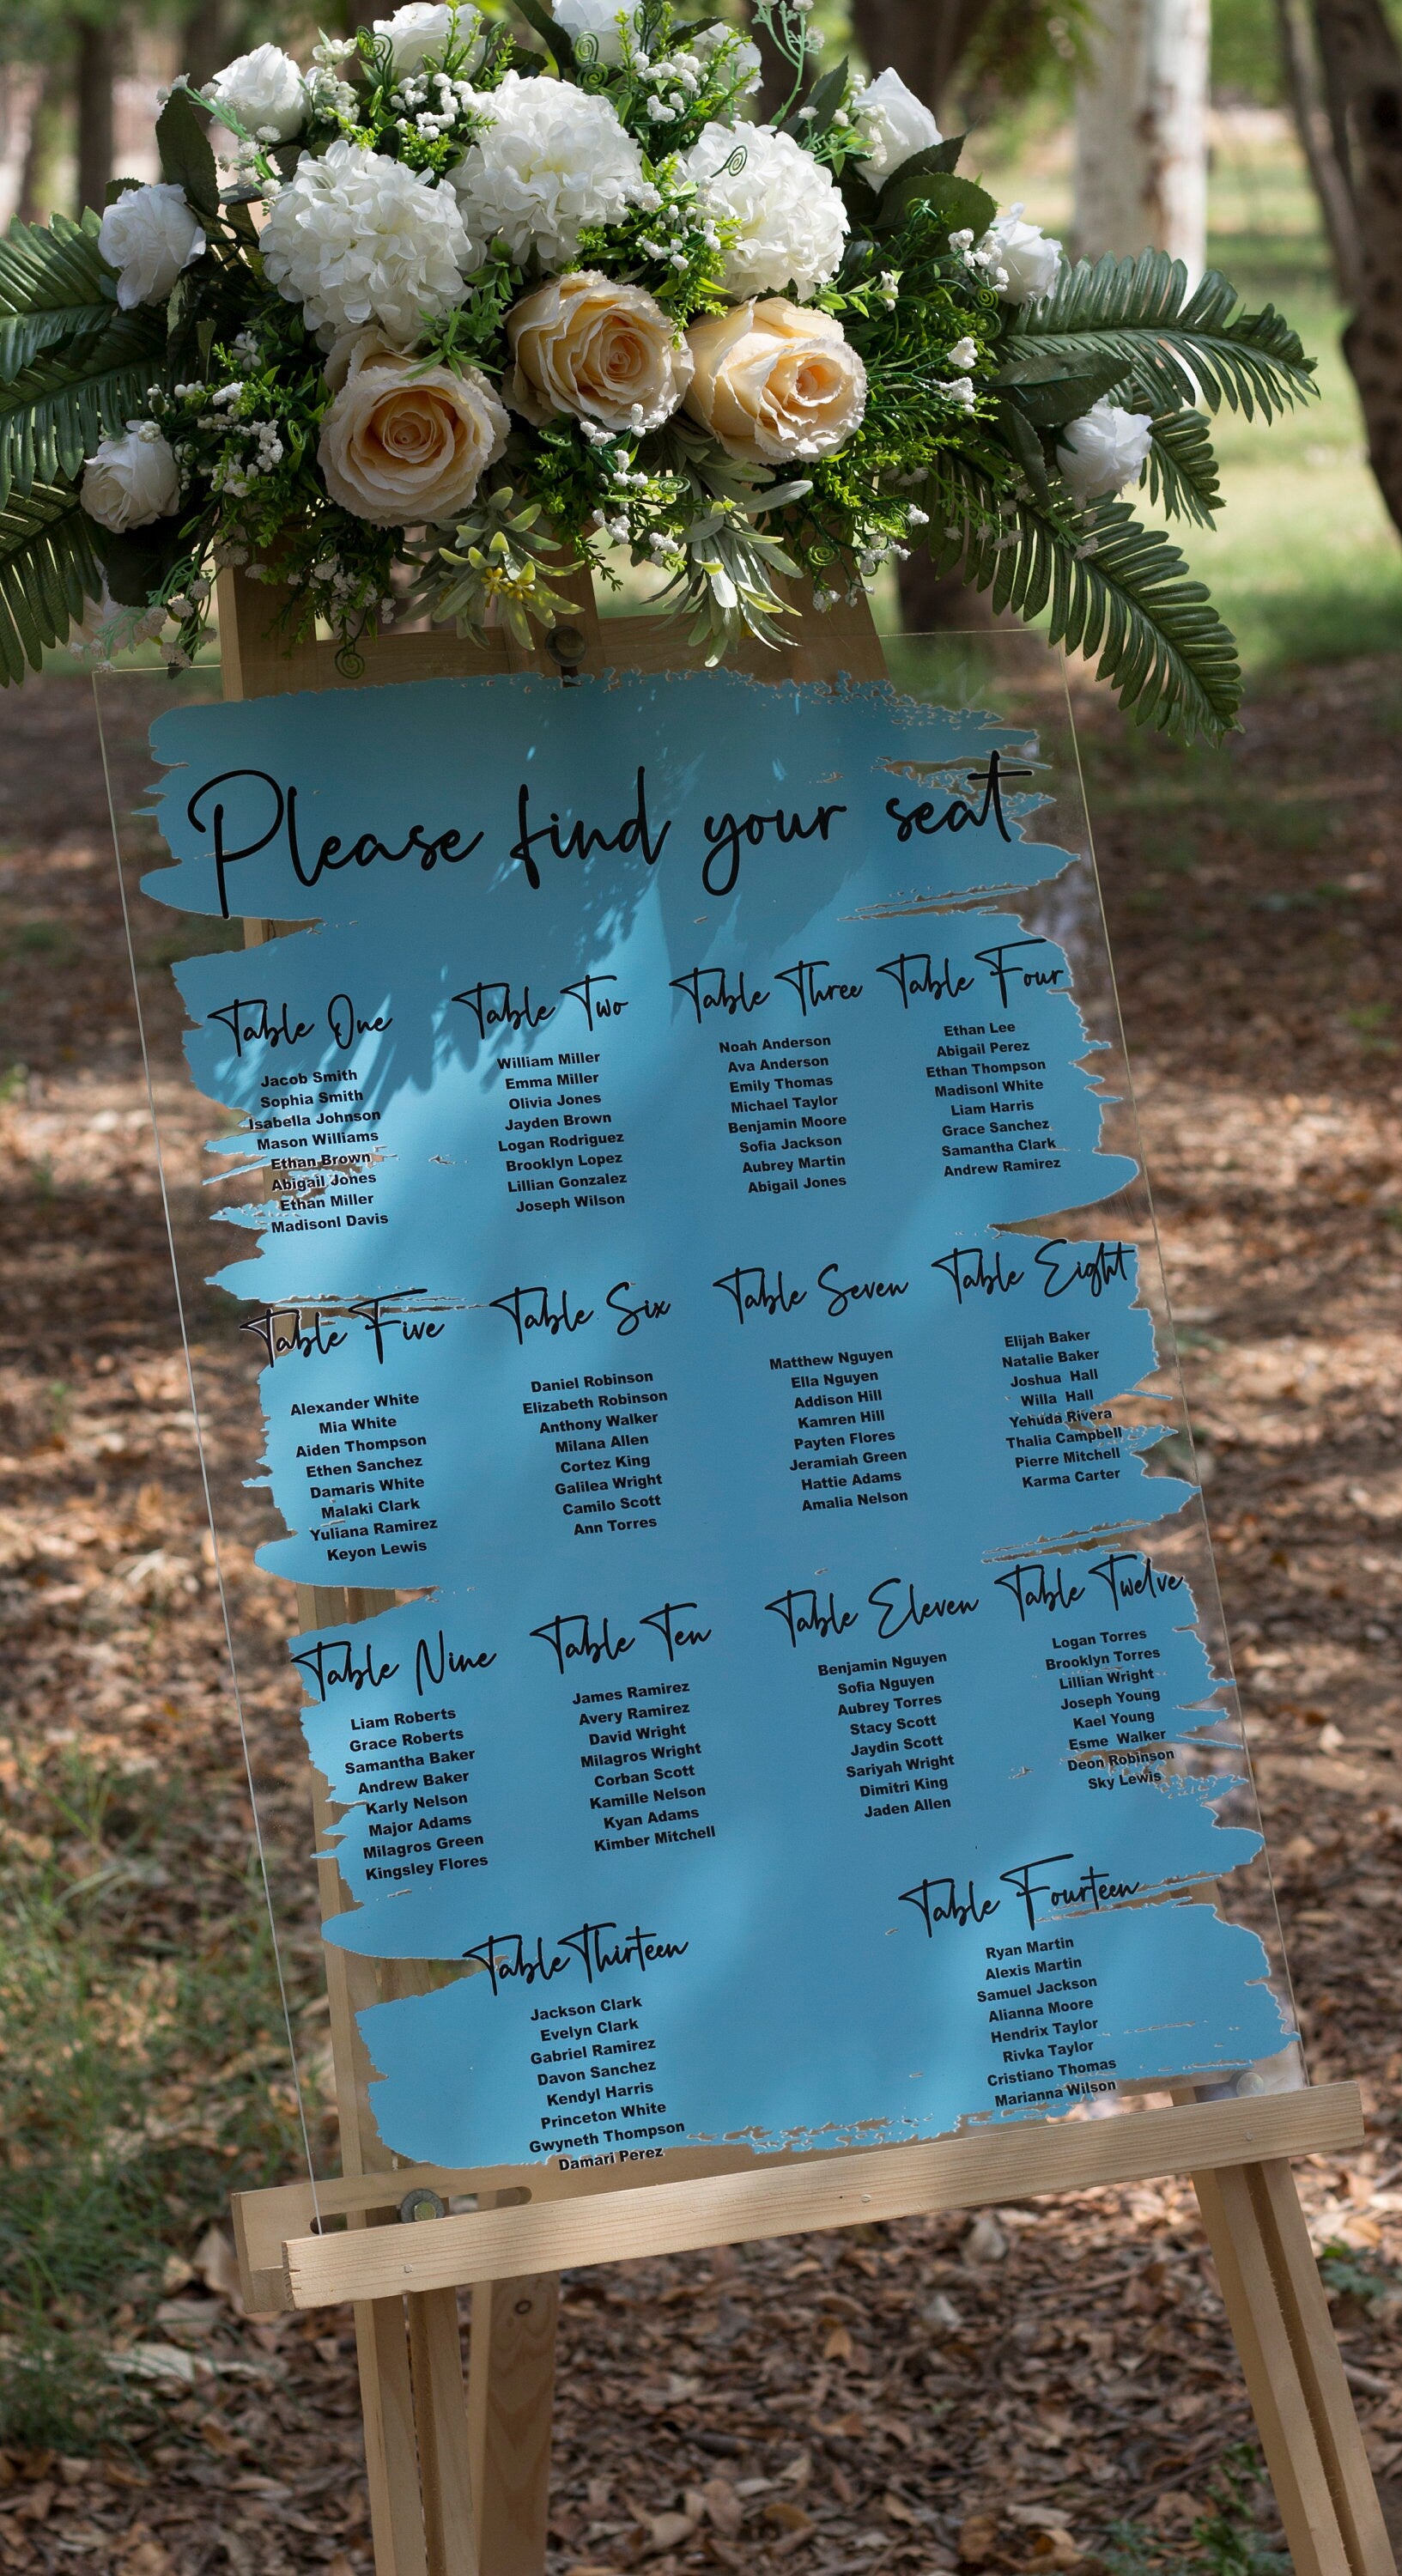 Please find your seat
Table One
Jacob Smith
Sophia Smith
Isabella Johnson
Mason Williams
Ethan Brown
Abigail Jones
Ethan Miller
Madisonl Davis
Table Two
William Miller
Emma Miller
Olivia Jones
Jayden Brown
Logan Rodriguez
Brooklyn Lopez
Lillian Gonzalez
Joseph Wilson
Table Three
Noah Anderson
Ava Anderson
Emily Thomas
Michael Taylor
Benjamin Moore
Sofia Jackson
Aubrey Martin
Abigail Jones
Table Four
Ethan Lee
Abigail Perez
Ethan Thompson
Madisonl White
Liam Harris
Grace Sanchez
Samantha Clark
Andrew Ramirez
Table Five
Alexander White
Mia White
Aiden Thompson
Ethen Sanchez
Damaris White
Malaki Clark
Yuliana Ramirez
Keyon Lewis
Table Six
Daniel Robinson
Elizabeth Robinson
Anthony Walker
Milana Allen
Cortez King
Galilea Wright
Camilo Scott
Ann Torres
Table Seven
Matthew Nguyen
Ella Nguyen
Addison Hill
Kamren Hill
Payten Flores
Jeramiah Green
Hattie Adams
Amalia Nelson
Table Eight
Elijah Baker
Natalie Baker
Joshua Hall
Willa Hall
Yehuda Rivera
Thalia Campbell
Pierre Mitchell
Karma Carter
Table Nine
Liam Roberts
Grace Roberts
Samantha Baker
Andrew Baker
Karly Nelson
Major Adams
Milagros Green
Kingsley Flores
Table Ten
James Ramirez
Avery Ramirez
David Wright
Milagros Wright
Corban Scott
Kamille Nelson
Kyan Adams
Kimber Mitchell
Table Eleven
Benjamin Nguyen
Sofia Nguyen
Aubrey Torres
Stacy Scott
Jaydin Scott
Sariyah Wright
Dimitri King
Jaden Allen
Table Twelve
Logan Torres
Brooklyn Torres
Lillian Wright
Joseph Young
Kael Young
Esme Walker
Deon Robinson
Sky Lewis
Table Thirteen
Jackson Clark
Evelyn Clark
Gabriel Ramirez
Davon Sanchez
Kendyl Harris
Princeton White
Gwyneth Thompson
Damari Perez
Table Fourteen
Ryan Martin
Alexis Martin
Samuel Jackson
Alianna Moore
Hendrix Taylor
Rivka Taylor
Cristiano Thomas
Marianna Wilson